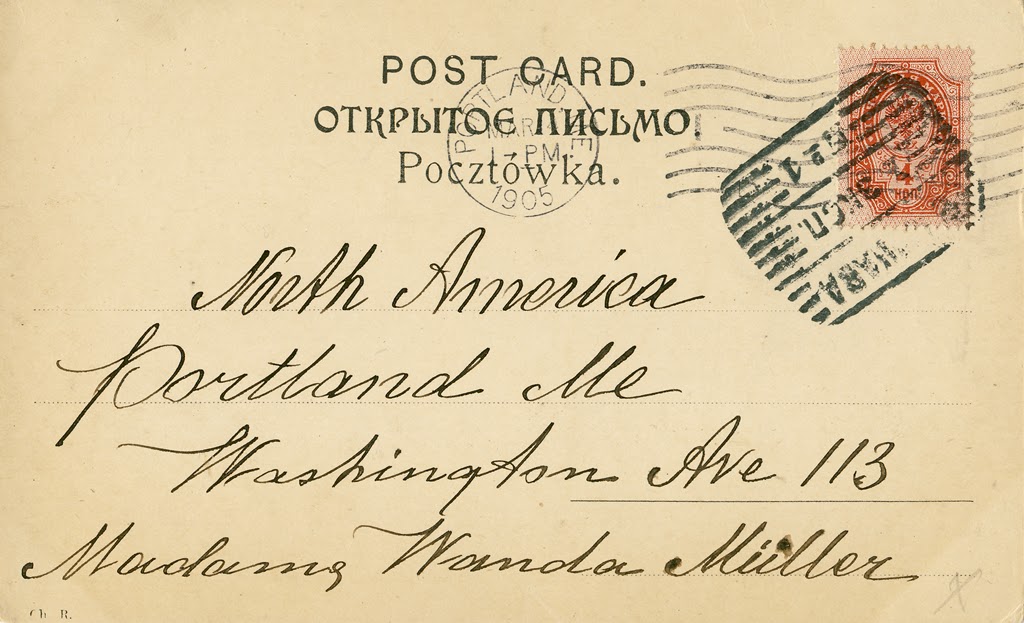 POST CARD.
ОТКРЫТОЕ ПИСЬМО
Pocztówka.
PORTLAND ME
MAR
1 - PM
1905
4
КОП
North America
Portland Me
Washington Ave 113
Madamę Wanda Müller
Ch. R.